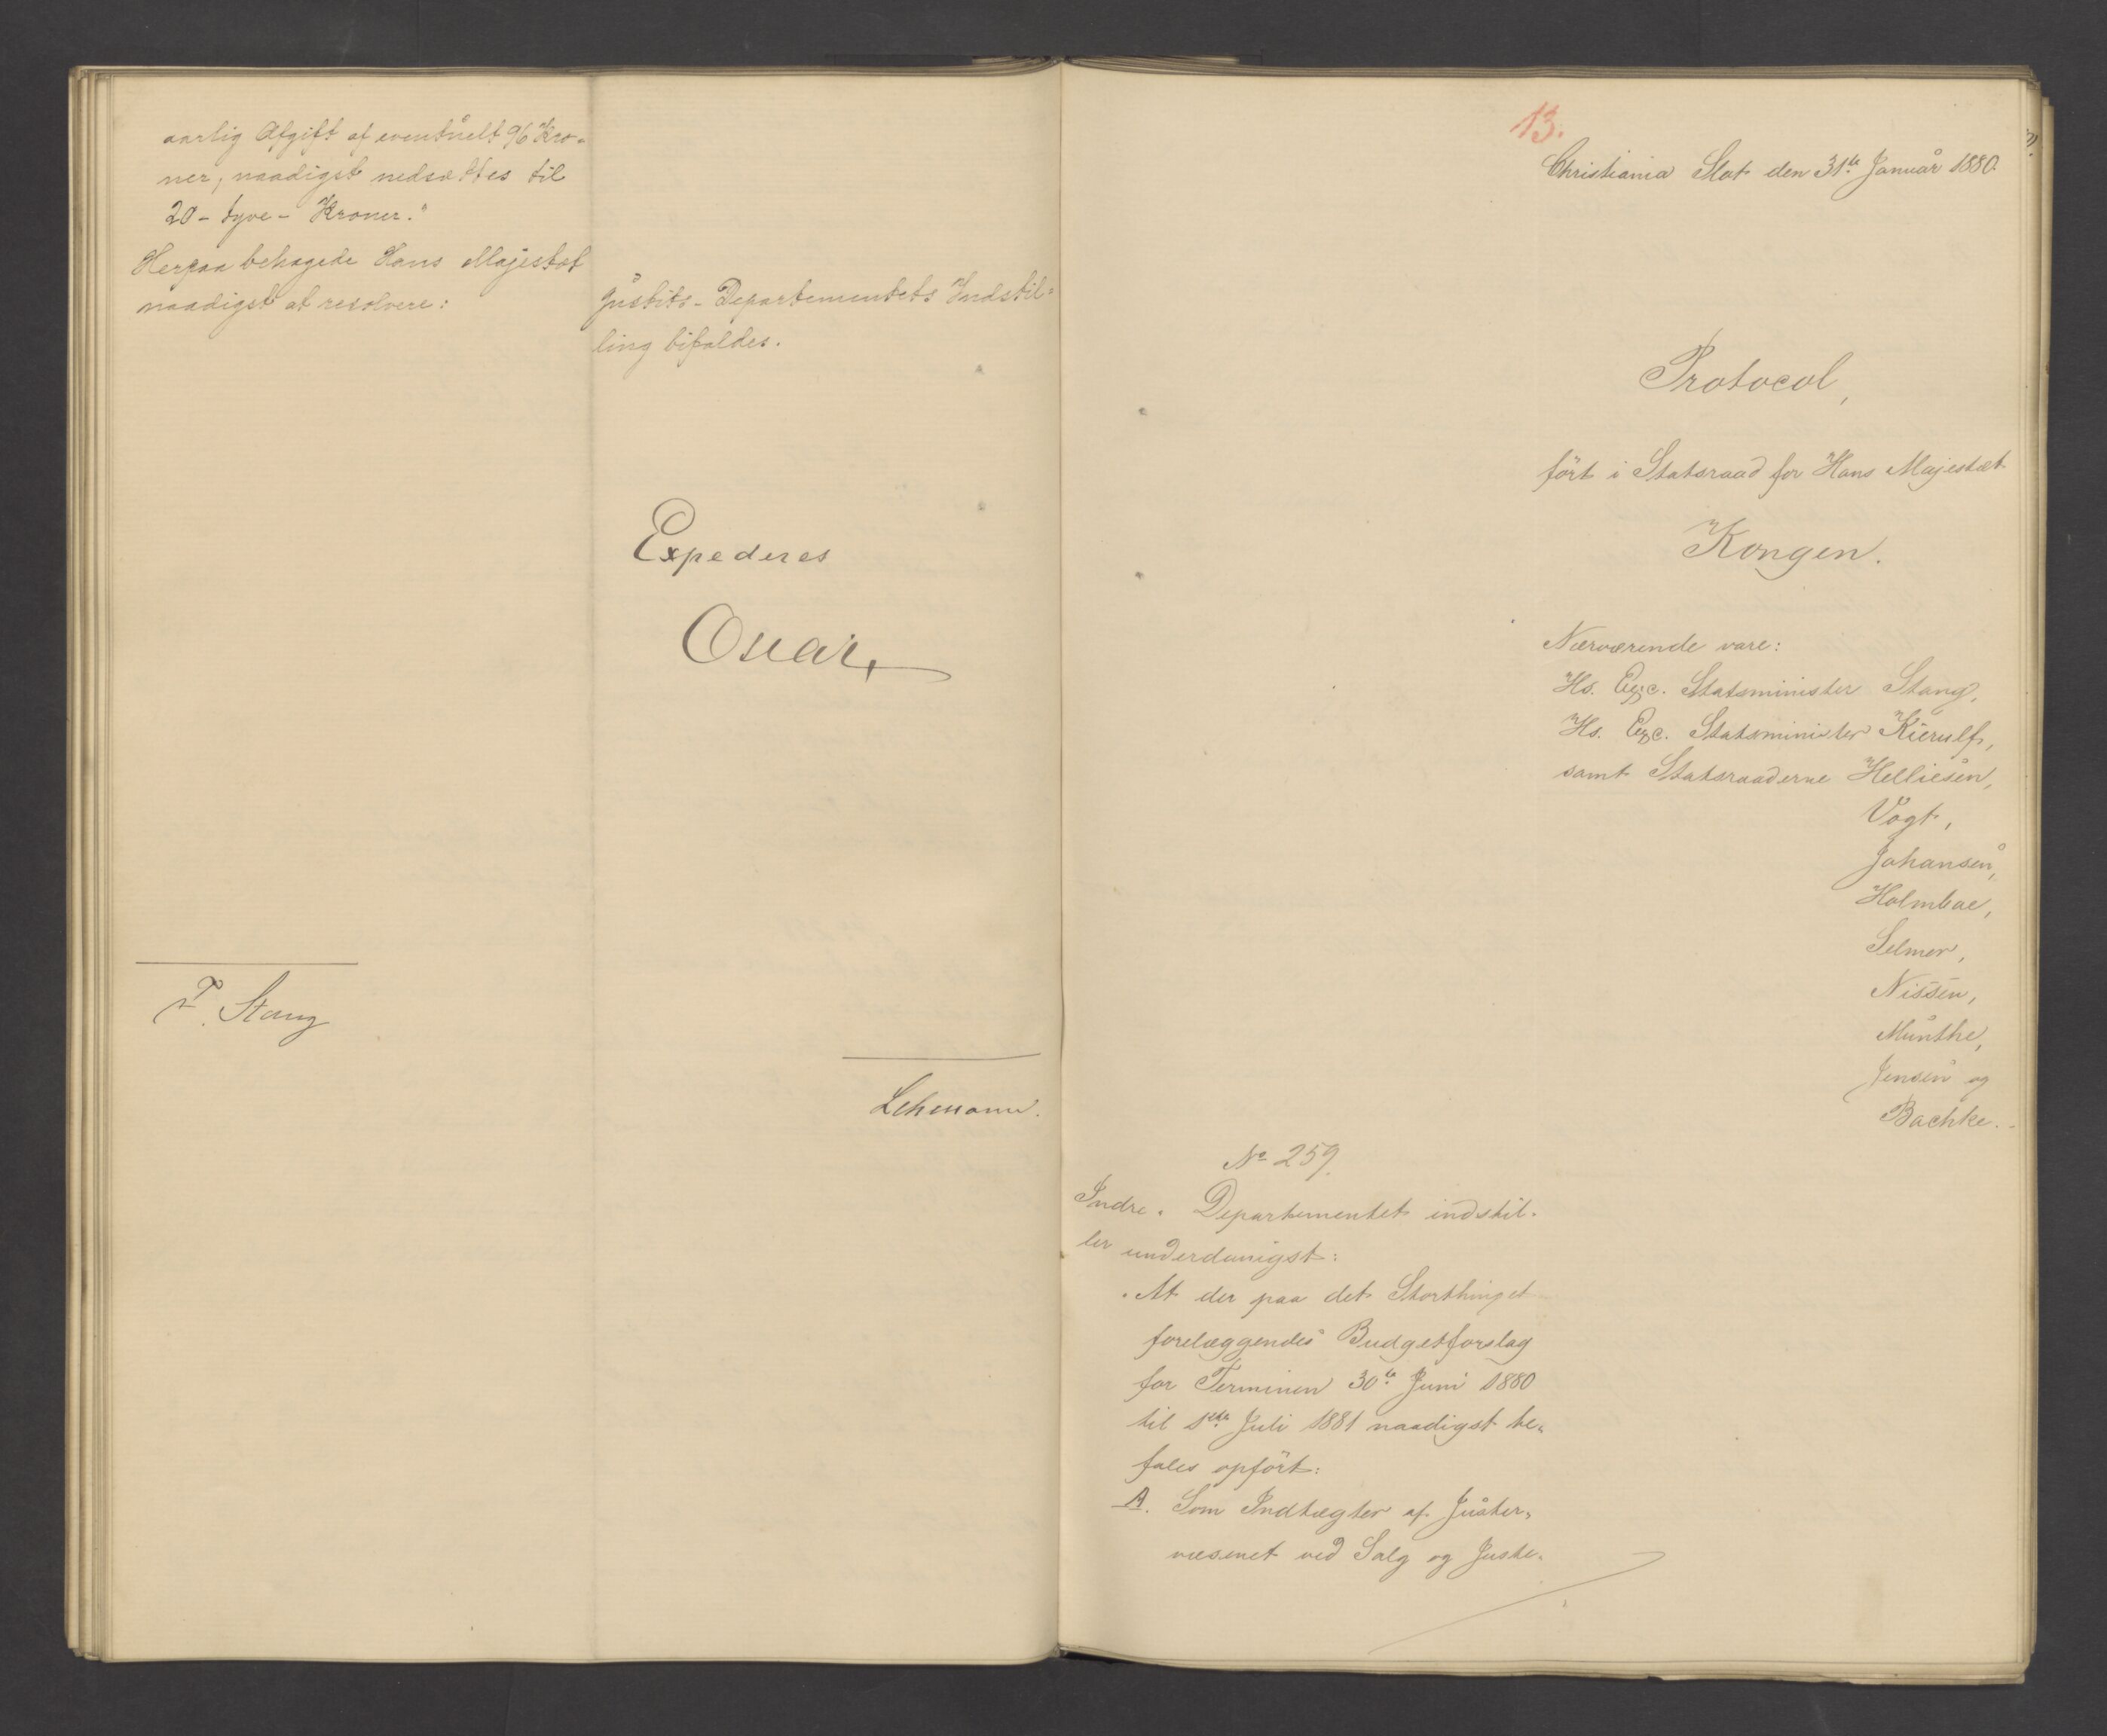 aarlig Afgift af eventuelt 96 Kro-
ner, naadigst nedsættes til
20 - tyve - Kroner."
Herpaa behagede Hans Majestæt
naadigst at resolvere:
Justits-Departementets Indstil=
ling bifaldes.
Expederes
Oscar
F. Stang
Lehmann.
13.
Christiania Slot den 31te Januar 1880.
Protocol,
ført i Statsraad for Hans Majestæt
Kongen.
Nærværende vare:
Hs. Exc. Statsminister Stang,
Hs. Exc. Statsminister Kierulf,
samt Statsraaderne Helliesen,
Vogt,
Johansen,
Holmboe,
Selmer,
Nissen,
Munthe,
Jensen og
Bachke.
No 259.
Indre-Departementet indstil-
ler underdanigst:
"At der paa det Storthinget
forelæggendes Budgetforslag
for Terminen 30te Juni 1880
til 1ste Juli 1881 naadigst be-
fales opført:
A. Som Indtægter af Juster-
væsenet ved Salg og Juste-